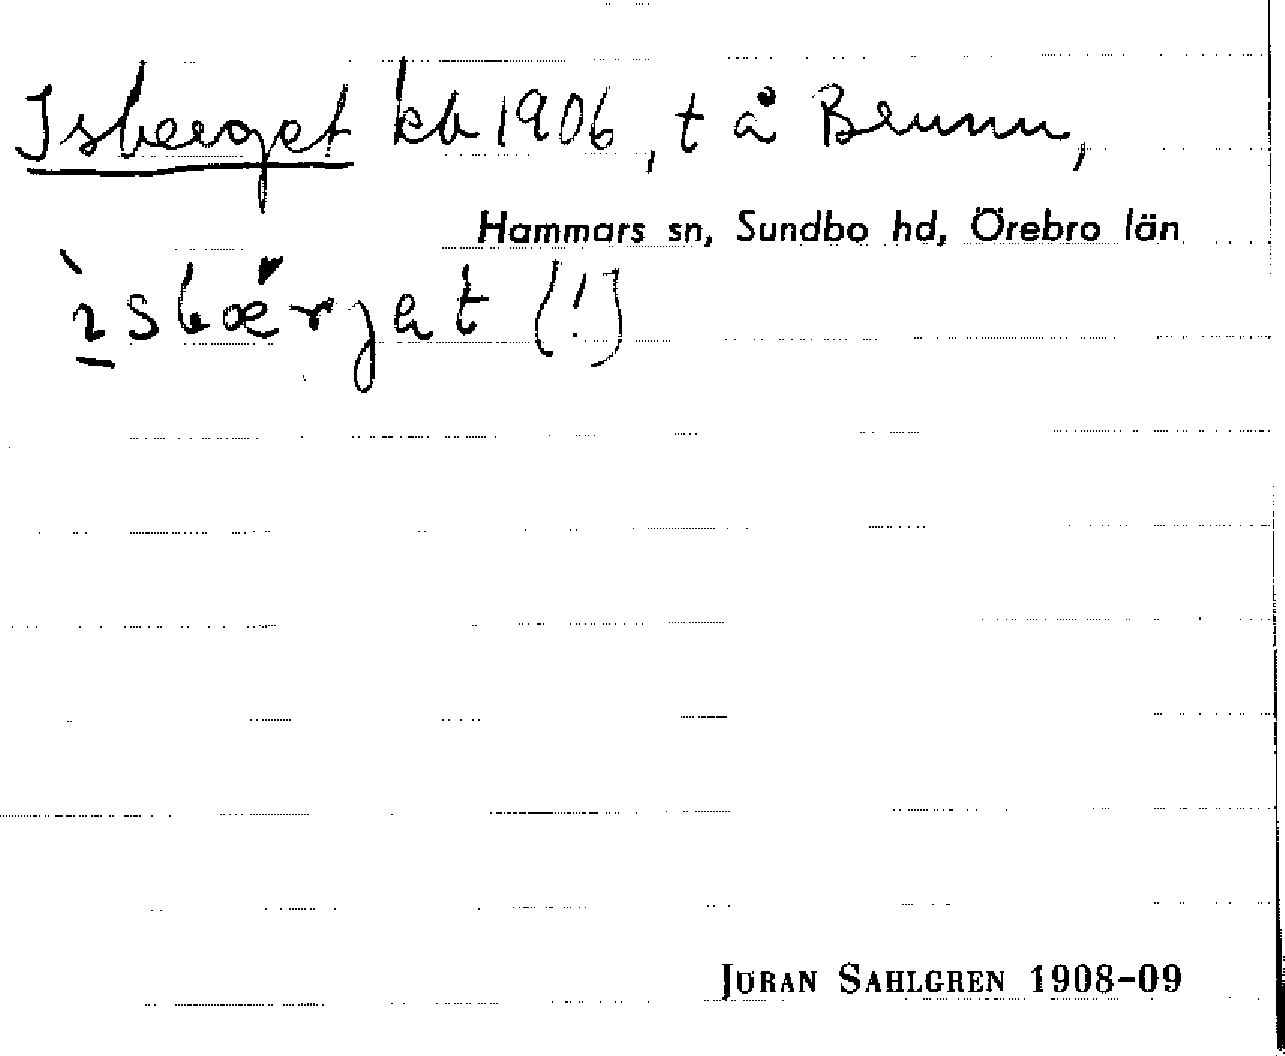 Isberget kb 1906, t å Brunn,
Hammars sn, Sundbo hd, Örebro län
ìsbærjet (!)
JÖRAN SAHLGREN 1908-09